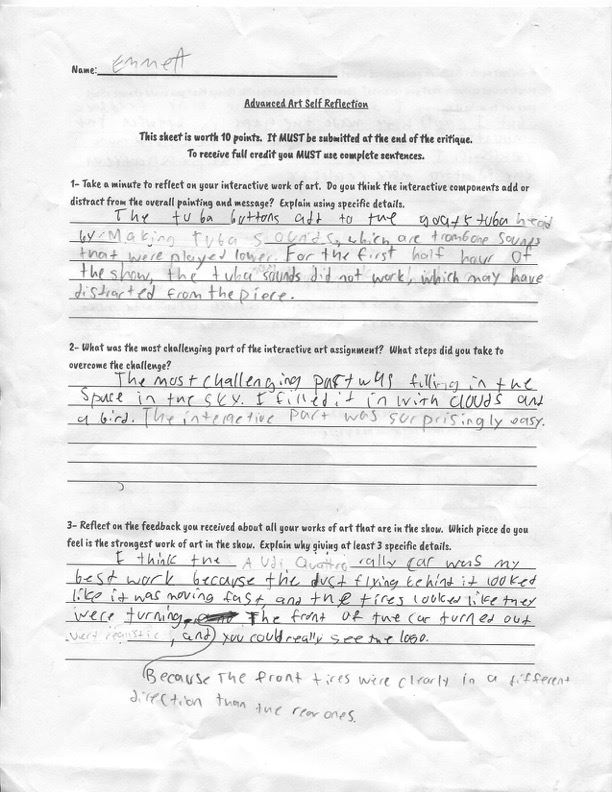 Name: Emmett
Advanced Art Self Reflection
This sheet is worth 10 points. It MUST be submitted at the end of the critique.
To receive full credit you MUST use complete sentences.
1- Take a minute to reflect on your interactive work of art. Do you think the interactive components add or
distract from the overall painting and message? Explain using specific details.
The tuba buttons add to the goat tuba head
by making tuba sounds, which are trombone sounds
that were played lower. For the first half hour of
the show, the tuba sounds did not work, which may have
distracted from the piece.
2- What was the most challenging part of the interactive art assignment? What steps did you take to
overcome the challenge?
The most challenging part was filling in the
space in the sky. I filled it in with clouds and
a bird. The interactive part was surprisingly easy.
3- Reflect on the feedback you received about all your works of art that are in the show. Which piece do you
feel is the strongest work of art in the show. Explain why giving at least 3 specific details.
I think the Audi Quattro rally car was my
best work because the dust flying behind it looked
like it was moving fast, and the tires looked like they
were turning, The front of the car turned out
very realistic, and you could really see the logo.
Because the front tires were clearly in a different
direction than the rear ones.